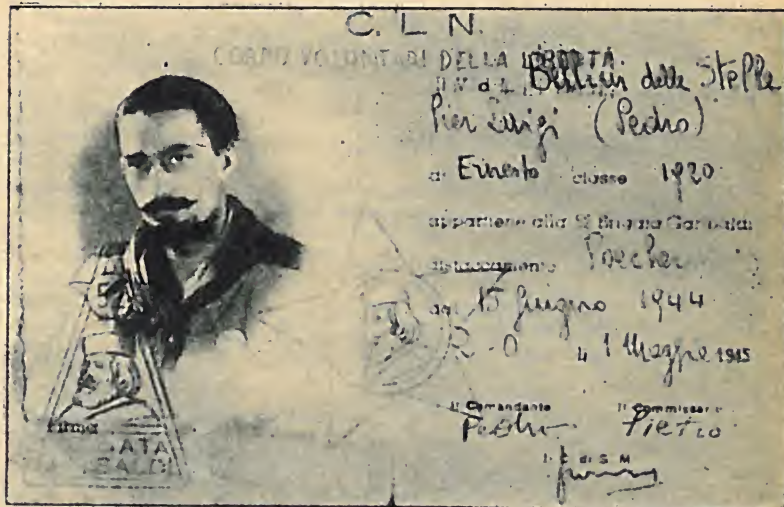 C. L. N.
CORPO VOLONTARI DELLA LIBERTÀ
Bellini delle Stelle
Pier Luigi (Pedro)
di Ernesto classe 1920
appartiene alla 52 Brigata Garibaldi
distaccamento
dal 15 giugno 1944
1 Maggio 1945
Il Comandante Il Commissario
Pedro Pietro
di S. M.
Firma